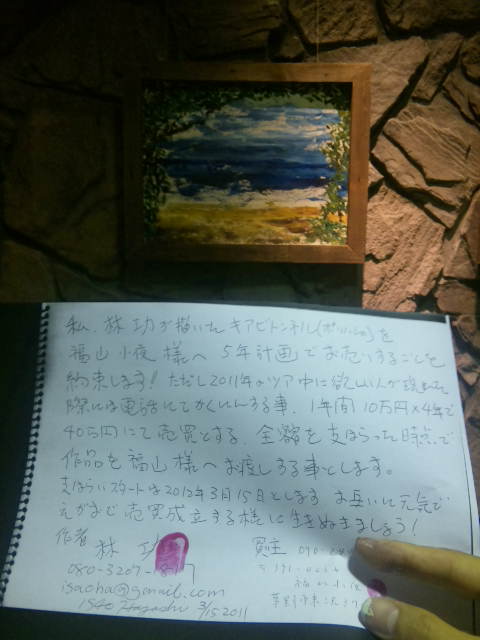 私、林 功が描いた キアビトンネル(ポリハレ)を
福山 小夜 様へ 5年計画でお売りすることを
約束します! ただし2011年のツアー中に欲しい人が現れた
際には電話にてかくにんする事、1年間 10万円×4年で
40万円にて売買とする、全額を支はらった時点で
作品を福山様へお渡しする事とします。
支はらいスタートは2012年3月15日とします お互いに元気で
えがおで 売買成立する様に生きぬきましょう!
作者 林 功
買主 090-08
080-3207-18 7
isacha@gmail.com
ISAO Hayashi 3/15 2011
福山小夜